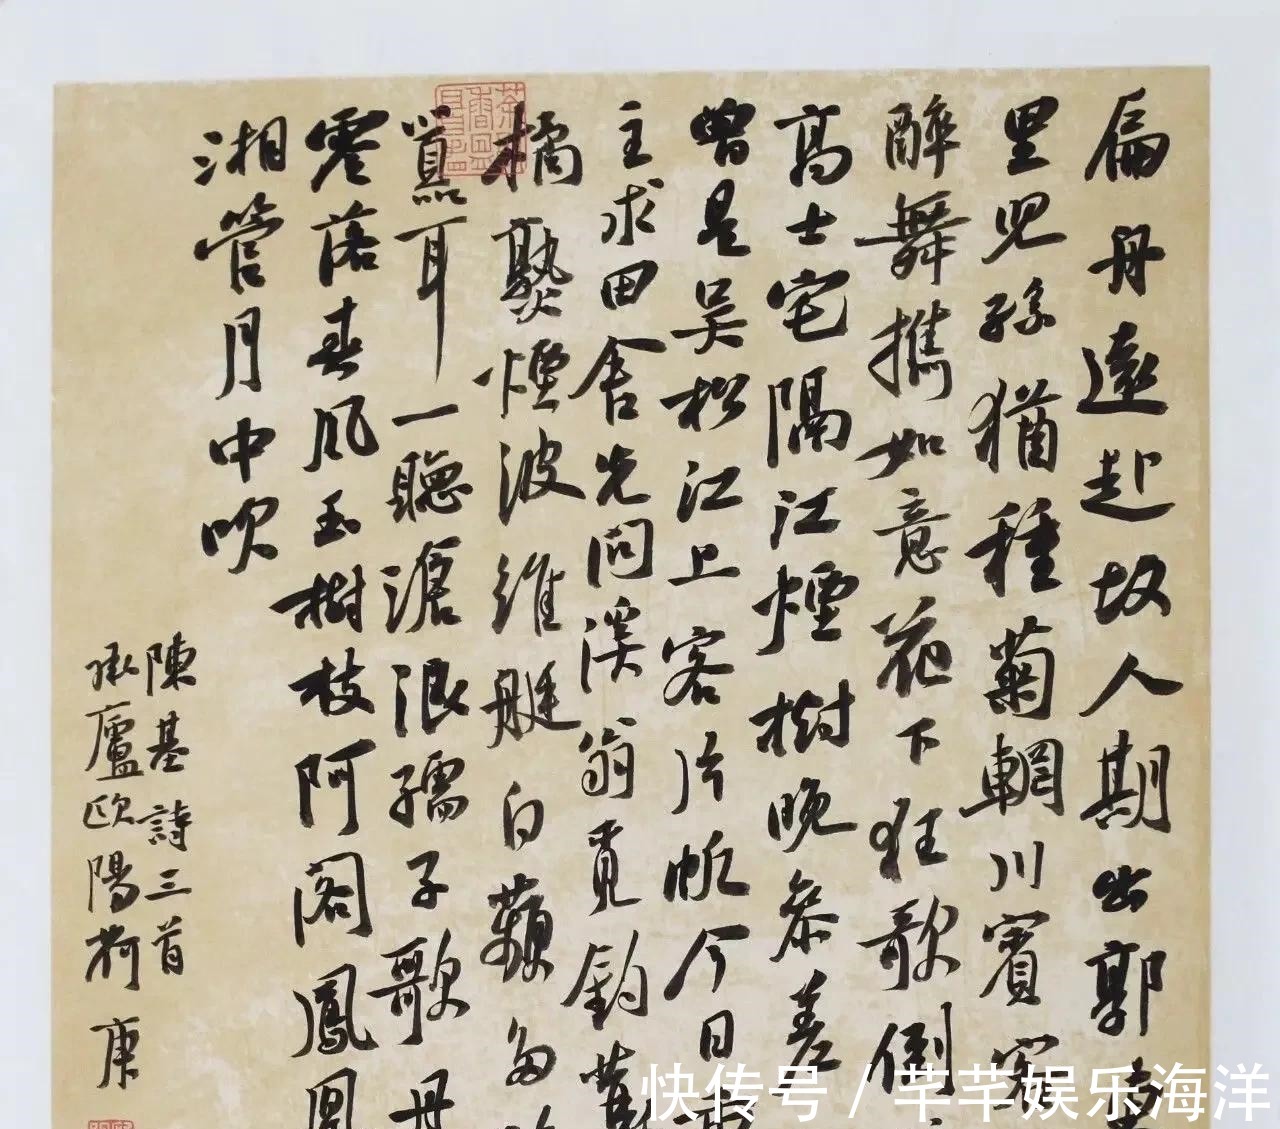 扁舟遠赴故人期出郭
里兒孫猶種菊輞川賓客
醉舞攜如意花下狂歌倒
高士宅隔江煙樹晚參差
曾是吳松江上客片帆今日
主求田舍先問溪翁覓釣
橘熟煙波維艇白蘋多
囂耳一聽滄浪孺子歌舟
零落春風玉樹枝阿閣鳳凰
湘管月中吹
陳基詩三首
承廬歐陽荷庚
快传号 / 芊芊娱乐海洋